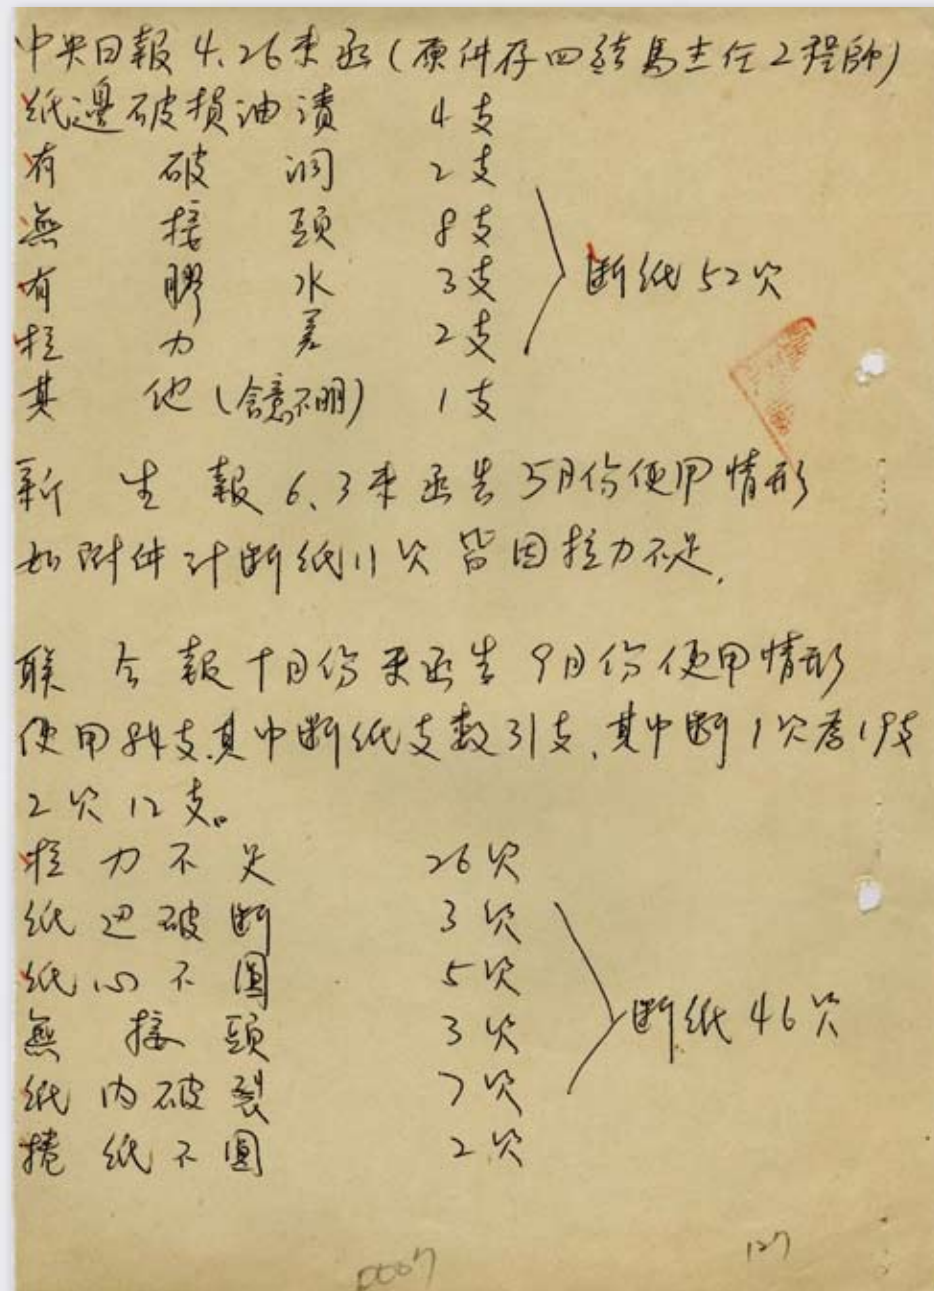 中央日報 4.26来函(原件存四課馬主任工程師)
紙邊破損油漬 4支
有破洞 2支
無接頭 8支
有膠水 3支
拉力差 2支
其他(含意不明) 1支
断紙52次
新生報 6.3来函告 5月份使用情形
如附件計断紙11次 皆因拉力不足.
联合報十月份来函告 9月份使用情形
使用84支.其中断紙支数31支.其中断1次者19支
2次12支。
拉力不足 26次
紙边破断 3次
紙心不圓 5次
無接頭 3次
紙内破裂 7次
捲紙不圓 2次
断紙46次
127